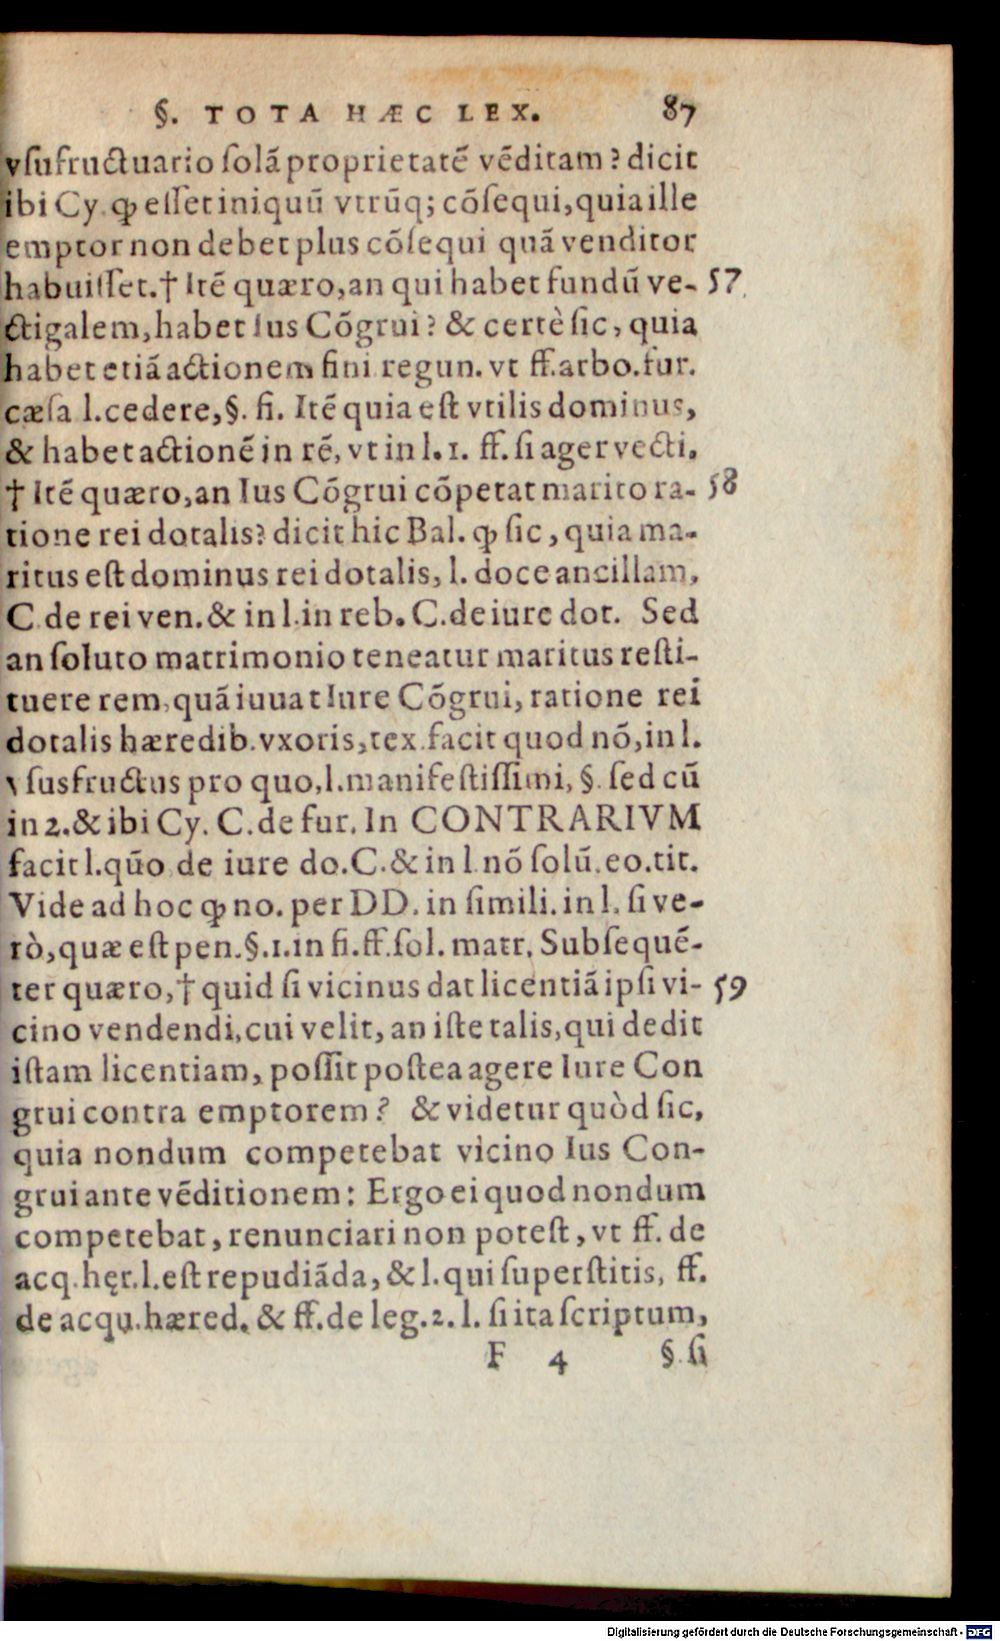 §. TOTA HÆC LEX. 87
vſufructuario ſolā proprietatē vēditam? dicit
ibi Cy. ꝙ eſſet iniquū vtrūq; cōſequi, quia ille
emptor non debet plus cōſequi quā venditor
habuiſſet.† Itē quæro, an qui habet fundū ve- 57
ctigalem, habet Ius Cōgrui? & certè ſic, quia
habet etiā actionem fini regun. vt ff. arbo. fur.
cæſa l. cedere, §. fi. Itē quia eſt vtilis dominus,
& habet actionē in rē, vt in l. 1. ff. ſi ager vecti.
† Itē quæro, an Ius Cōgrui cōpetat marito ra- 58
tione rei dotalis? dicit hic Bal. ꝙ ſic, quia ma-
ritus eſt dominus rei dotalis, l. doce ancillam,
C. de rei ven. & in l. in reb. C. de iure dot. Sed
an ſoluto matrimonio teneatur maritus reſti-
tuere rem, quā iuuat Iure Cōgrui, ratione rei
dotalis hæredib. vxoris, tex. facit quod nō, in l.
vſusfructus pro quo, l. manifeſtiſſimi, §. ſed cū
in 2. & ibi Cy. C. de fur. In CONTRARIVM
facit l. qūo de iure do. C. & in l. nō ſolū. eo. tit.
Vide ad hoc ꝙ no. per DD. in ſimili. in l. ſi ve-
rò, quæ eſt pen. §. 1. in fi. ff. ſol. matr. Subſequē-
ter quæro, † quid ſi vicinus dat licentiā ipſi vi- 59
cino vendendi, cui velit, an iſte talis, qui dedit
iſtam licentiam, poſſit poſtea agere Iure Con
grui contra emptorem? & videtur quòd ſic,
quia nondum competebat vicino Ius Con-
grui ante vēditionem: Ergo ei quod nondum
competebat, renunciari non poteſt, vt ff. de
acq. hęr. l. eſt repudiāda, & l. qui ſuperſtitis, ff.
de acqu. hæred. & ff. de leg. 2. l. ſi ita ſcriptum,
F 4 §. ſi
Digitalisierung gefördert durch die Deutsche Forschungsgemeinschaft - DFG